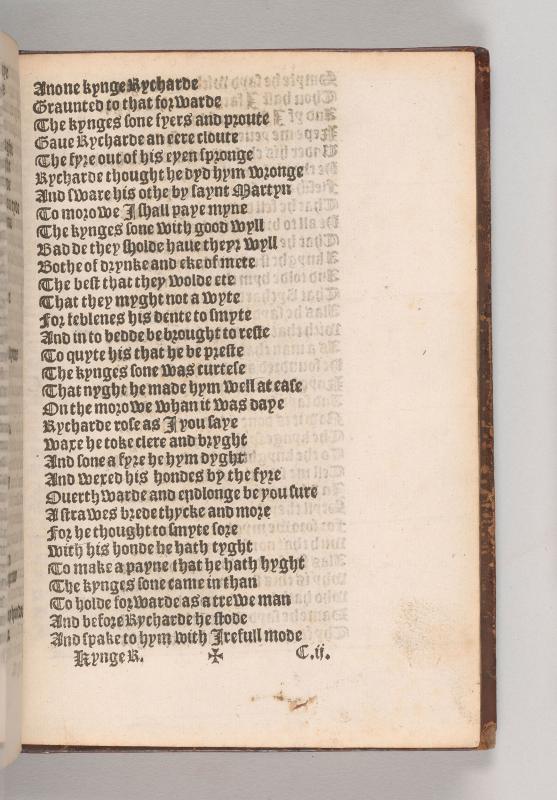 Anone kynge Rycharde
Graunted to that forwarde
The kynges sone fyers and proute
Gaue Rycharde an eere cloute
The fyre out of his eyen spronge
Rycharde thought he dyd hym wronge
And sware his othe by saynt Martyn
To morowe I shall paye myne
The kynges sone with good wyll
Bad de they sholde haue theyr wyll
Bothe of drynke and eke of mete
The best that they wolde ete
That they myght not a wyte
For feblenes his dente to smyte
And in to bedde be brought to reste
To quyte his that he be preste
The kynges sone was curtese
That nyght he made hym well at ease
On the morowe whan it was daye
Rycharde rose as I you saye
waxe he toke clere and bryght
And sone a fyre he hym dyght
And wexed his hondes by the fyre
Ouerthwarde and endlonge be you sure
A strawes brede thycke and more
For he thought to smyte sore
with his honde he hath tyght
To make a payne that he hath hyght
The kynges sone came in than
To holde forwarde as a trewe man
And before Rycharde he stode
And spake to hym with Irefull mode
Kynge R. ✠ C.ij.